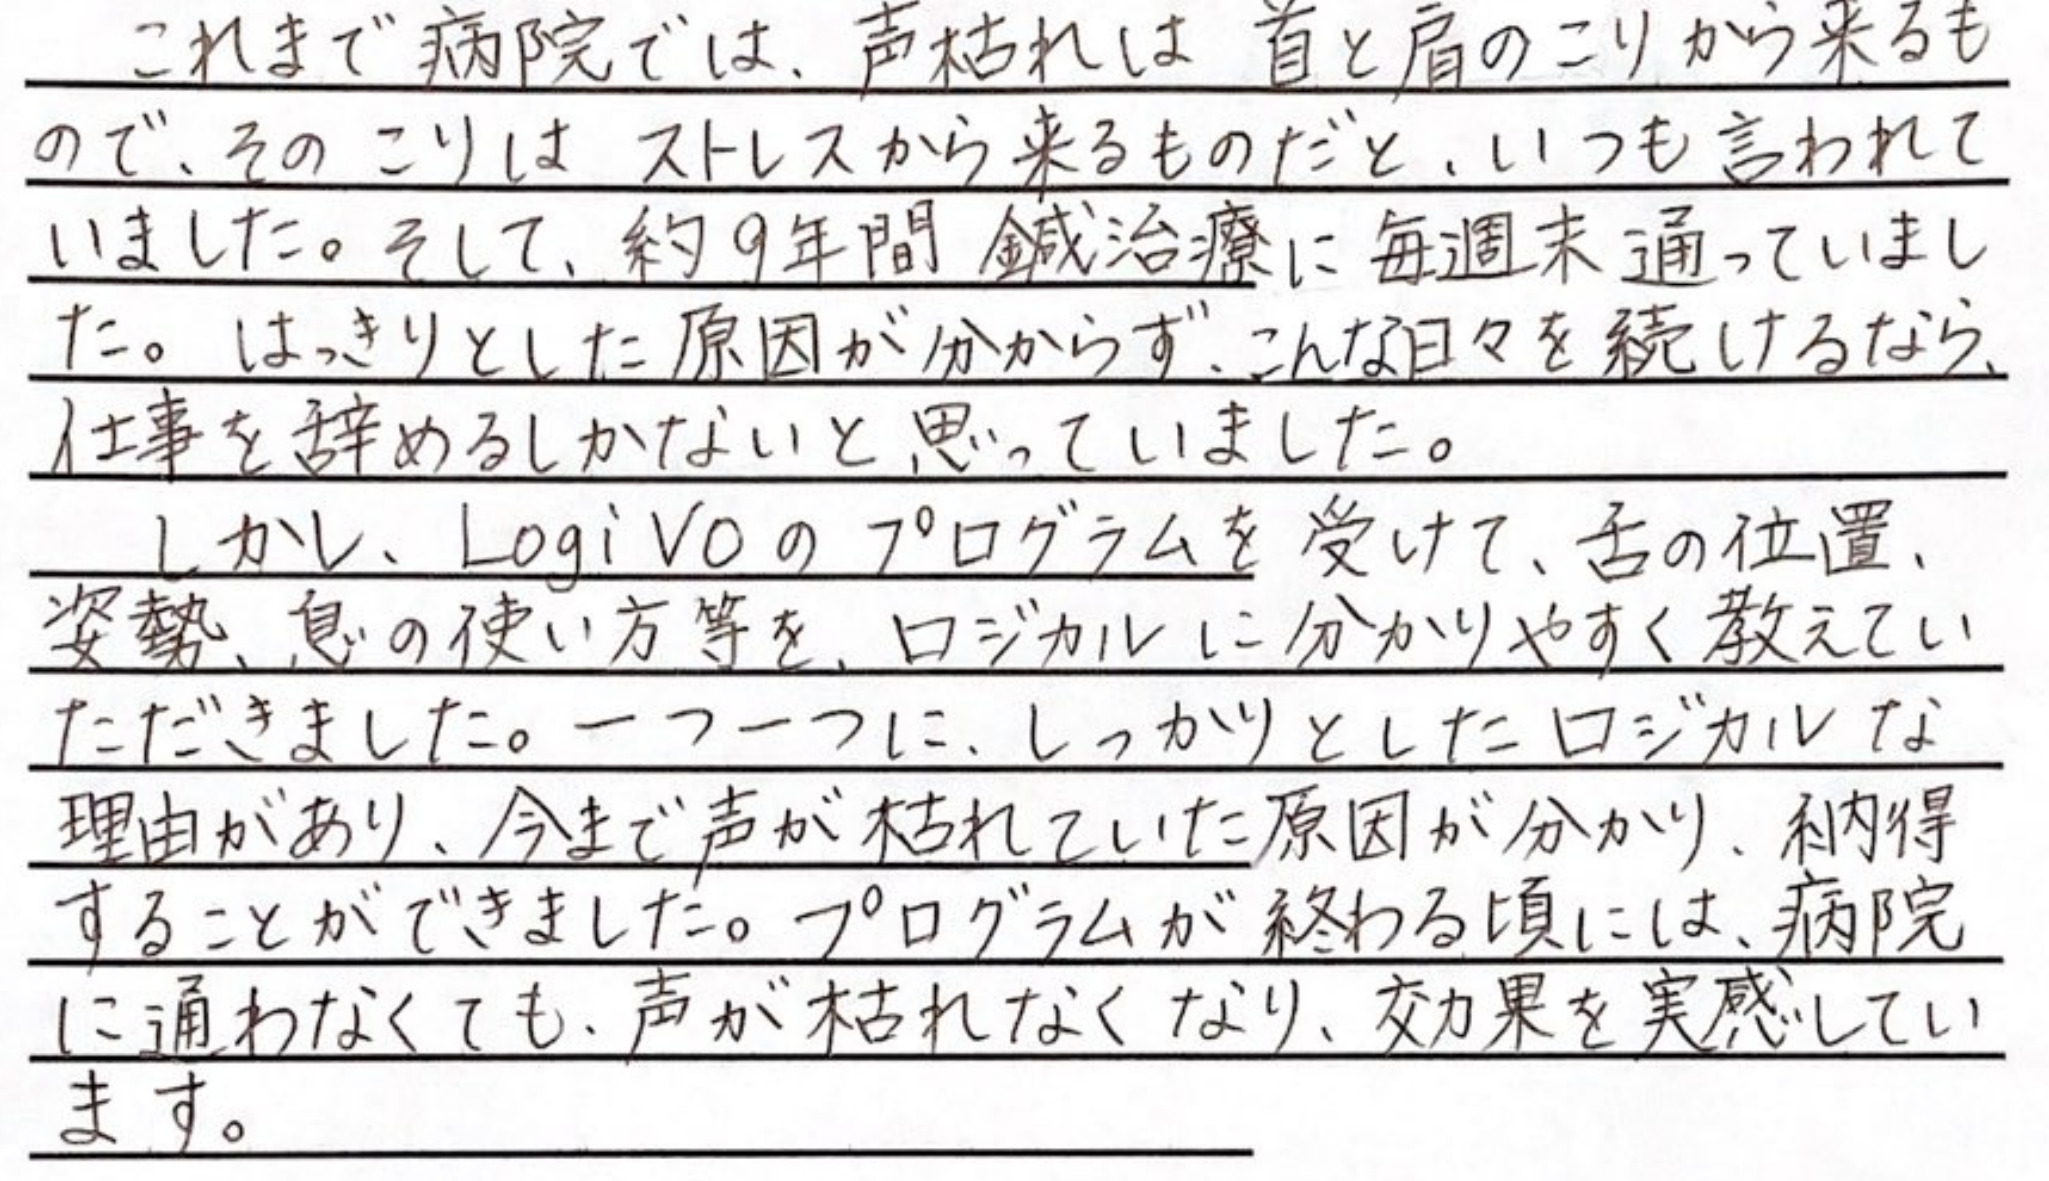 これまで病院では、声枯れは首と肩のこりから来るも
ので、そのこりはストレスから来るものだと、いつも言われて
いました。そして、約9年間鍼治療に毎週末通っていまし
た。はっきりとした原因が分からず、こんな日々を続けるなら、
仕事を辞めるしかないと思っていました。
しかし、LogiVOのプログラムを受けて、舌の位置、
姿勢、息の使い方等を、ロジカルに分かりやすく教えてい
ただきました。一つ一つに、しっかりとしたロジカルな
理由があり、今まで声が枯れていた原因が分かり、納得
することができました。プログラムが終わる頃には、病院
に通わなくても、声が枯れなくなり、効果を実感してい
ます。